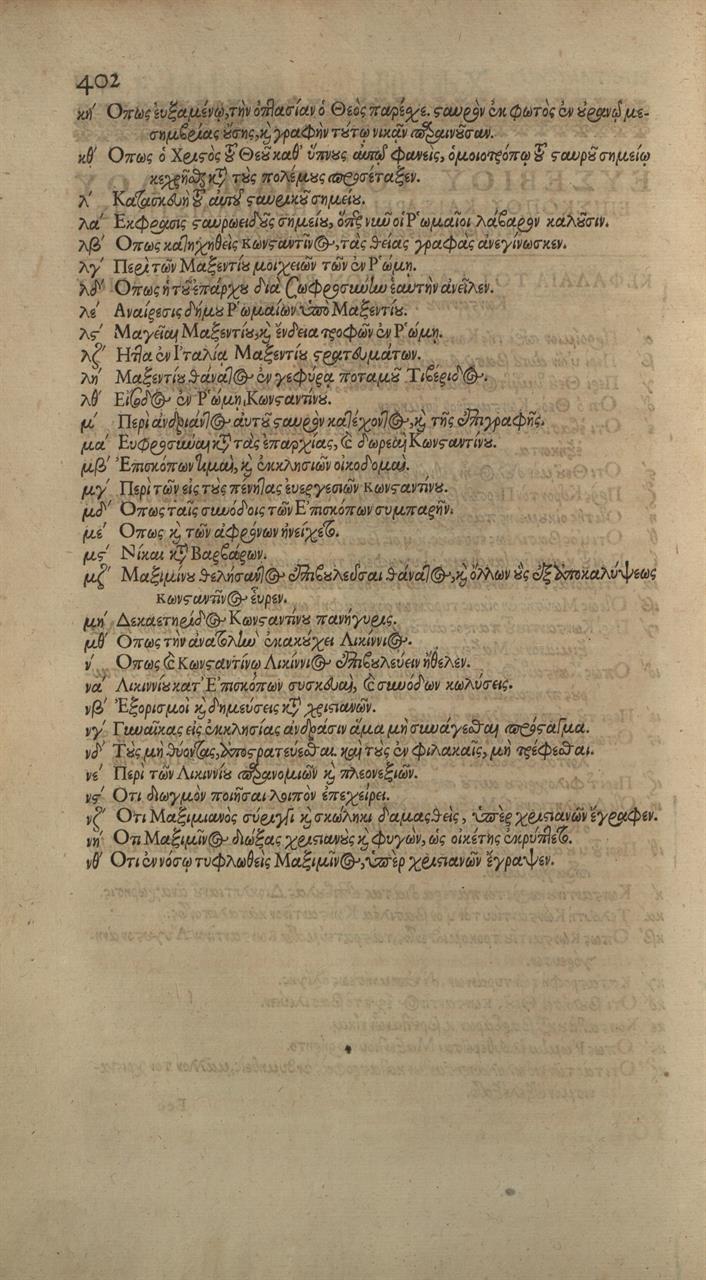 402
κη′ Ὅπως εὐξαμένῳ, τὴν ὀπτασίαν ὁ Θεὸς παρέσχε. σαυρὸν ἐκ φωτὸς ἐν οὐρανῷ με-
σημβρίας οὔσης, καὶ γραφὴν τούτῳ νικᾶν παραινοῦσαν.
κθ′ Ὅπως ὁ Χριστὸς τοῦ Θεοῦ καθ' ὕπνους αὐτῷ φανεὶς, ὁμοιοτρόπῳ τοῦ σταυροῦ σημείῳ
κεχρῆσθαι κατὰ τοὺς πολέμους προσέταξεν.
λ′ Κατασκευὴ τοῦ αὐτοῦ σταυρικοῦ σημείου.
λα′ Ἔκφρασις σταυροειδοῦς σημείου, ὅπερ νῦν οἱ Ῥωμαῖοι λάβαρον καλοῦσιν.
λβ′ Ὅπως κατηχηθεὶς Κωνσταντῖνος, τὰς θείας γραφὰς ἀνεγίνωσκεν.
λγ′ Περὶ τῶν Μαξεντίου μοιχειῶν τῶν ἐν Ῥώμῃ.
λδ′ Ὅπως ἡ τοῦ ἐπάρχου διὰ σωφροσύνην ἑαυτὴν ἀνεῖλεν.
λε′ Ἀναίρεσις δήμου Ῥωμαίων ὑπὸ Μαξεντίου.
λς′ Μαγεῖαι Μαξεντίου, καὶ ἔνδεια τροφῶν ἐν Ῥώμῃ.
λζ′ Ἧττα ἐν Ἰταλίᾳ Μαξεντίου στρατευμάτων.
λη′ Μαξεντίου θάνατος ἐν γεφύρᾳ ποταμοῦ Τιβέριδος.
λθ′ Εἴσοδος ἐν Ῥώμῃ, Κωνσταντίνου.
μ′ Περὶ ἀνδριάντος αὐτοῦ σταυρὸν κατέχοντος, καὶ τῆς ἐπιγραφῆς.
μα′ Εὐφροσύναι κατὰ τὰς ἐπαρχίας, καὶ δωρεαὶ Κωνσταντίνου.
μβ′ Ἐπισκόπων τιμαὶ, καὶ ἐκκλησιῶν οἰκοδομαί.
μγ′ Περὶ τῶν εἰς τοὺς πένητας εὐεργεσιῶν Κωνσταντίνου.
μδ′ Ὅπως ταῖς συνόδοις τῶν Ἐπισκόπων συμπαρῆν.
με′ Ὅπως καὶ τῶν ἀφρόνων ἠνείχετο.
μς′ Νῖκαι κατὰ Βαρβάρων.
μζ′ Μαξιμίνου θελήσαντος ἐπιβουλεῦσαι θάνατος, καὶ ἄλλων οὓς ἐξ ἀποκαλύψεως
Κωνσταντῖνος εὗρεν.
μη′ Δεκαετηρίδος Κωνσταντίνου πανήγυρις.
μθ′ Ὅπως τὴν ἀνατολὴν ἐκακούχει Λικίννιος.
ν′ Ὅπως καὶ Κωνσταντίνῳ Λικίννιος ἐπιβουλεύειν ἤθελεν.
να′ Λικιννίου κατ' Ἐπισκόπων συσκευαὶ, καὶ συνόδων κωλύσεις.
νβ′ Ἐξορισμοὶ καὶ δημεύσεις κατὰ χριστιανῶν.
νγ′ Γυναῖκας εἰς ἐκκλησίας ἀνδράσιν ἅμα μὴ συνάγεσθαι πρόσταγμα.
νδ′ Τοὺς μὴ θύοντας, ἀποστρατεύεσθαι. καὶ τοὺς ἐν φιλακαῖς, μὴ τρέφεσθαι.
νε′ Περὶ τῶν Λικιννίου παρανομιῶν καὶ πλεονεξιῶν.
νς′ Ὅτι διωγμὸν ποιῆσαι λοιπὸν ἐπεχείρει.
νζ′ Ὅτι Μαξιμιανὸς σύριγγι καὶ σκώληκι δαμασθεὶς, ὑπὲρ χριστιανῶν ἔγραφεν.
νη′ Ὅτι Μαξιμῖνος διώξας χριστιανοὺς καὶ φυγὼν, ὡς οἰκέτης ἐκρύπτετο.
νθ′ Ὅτι ἐν νόσῳ τυφλωθεὶς Μαξιμῖνος, ὑπὲρ χριστιανῶν ἔγραψεν.